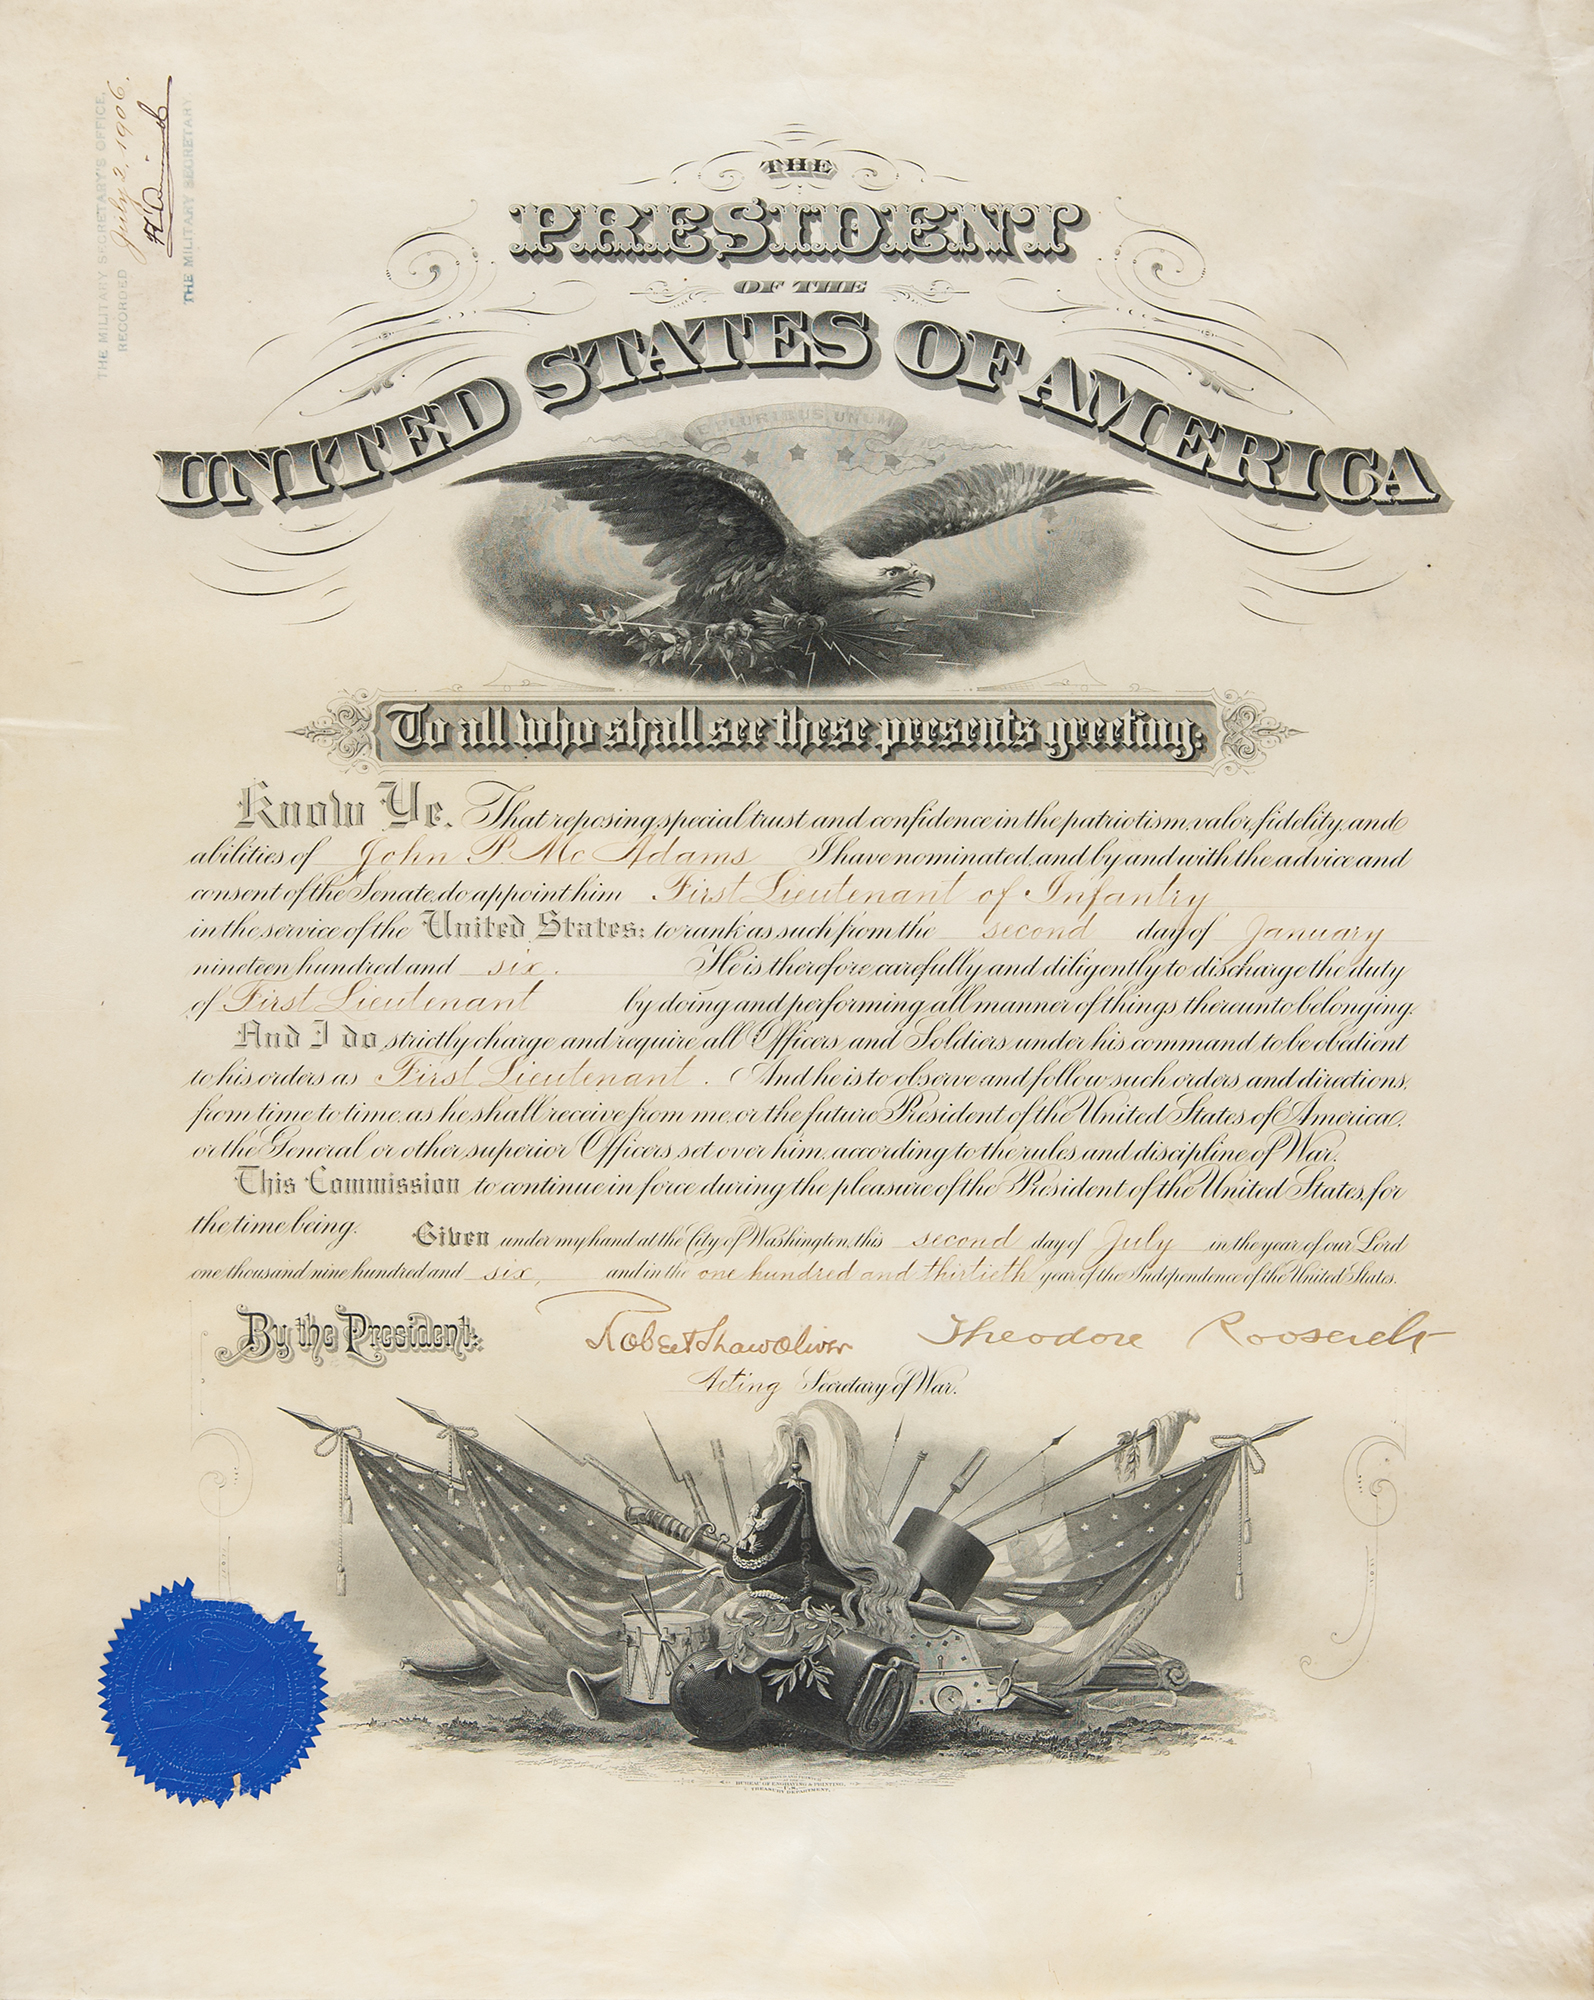 THE MILITARY SECRETARY'S OFFICE,
RECORDED July 2, 1906.
THE MILITARY SECRETARY
THE
PRESIDENT
OF THE
UNITED STATES OF AMERICA
E PLURIBUS UNUM
To all who shall see these presents greeting:
Know Ye, That reposing special trust and confidence in the patriotism, valor, fidelity, and
abilities of John P. McAdams I have nominated, and by and with the advice and
consent of the Senate, do appoint him First Lieutenant of Infantry
in the service of the United States: to rank as such from the second day of January
nineteen hundred and six. He is therefore carefully and diligently to discharge the duty
of First Lieutenant by doing and performing all manner of things thereunto belonging.
And I do strictly charge and require all Officers and Soldiers under his command to be obedient
to his orders as First Lieutenant. And he is to observe and follow such orders, and directions,
from time to time, as he shall receive from me, or the future President of the United States of America,
or the General or other superior Officers set over him, according to the rules and discipline of War.
This Commission to continue in force during the pleasure of the President of the United States, for
the time being.
Given under my hand at the City of Washington, this second day of July in the year of our Lord
one thousand nine hundred and six, and in the one hundred and thirtieth year of the Independence of the United States.
By the President: Robert Shaw Oliver Theodore Roosevelt
Acting Secretary of War.
BUREAU OF ENGRAVING & PRINTING,
TREASURY DEPARTMENT.